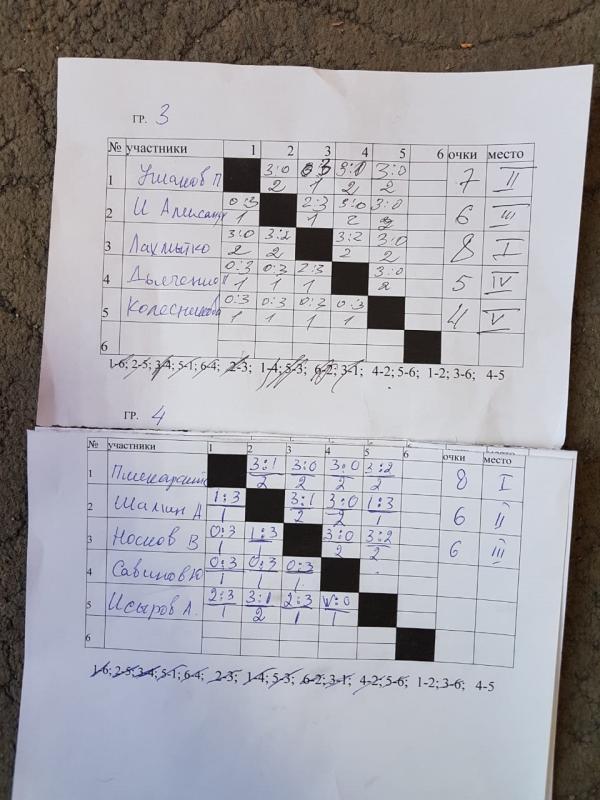 ГР. 3
№ участники 1 2 3 4 5 6 очки место
1 Ушаков П 3:0 0:3 3:0 3:0 7 II
2 1 2 2
2 И Александр 0:3 2:3 3:0 3:0 6 III
1 1 2 2
3 Лахмытко 3:0 3:2 3:2 3:0 8 I
2 2 2 2
4 0:3 0:3 2:3 3:0 5 IV
1 1 1 2
5 Колесникова 0:3 0:3 0:3 0:3 4 V
1 1 1 1
6
1-6; 2-5; 3-4; 5-1; 6-4; 2-3; 1-4; 5-3; 6-2; 3-1; 4-2; 5-6; 1-2; 3-6; 4-5
ГР. 4
№ участники 1 2 3 4 5 6 очки место
1 3:1 3:0 3:0 3:2 8 I
2 2 2 2
2 Шалин А 1:3 3:1 3:0 1:3 6 II
1 2 2 1
3 Носков В 0:3 1:3 3:0 3:2 6 III
1 1 2 2
4 Савинов Ю 0:3 0:3 0:3
1 1 1
5 Исыров А. 2:3 3:1 2:3 V:0
1 2 1 1
6
1-6; 2-5; 3-4; 5-1; 6-4; 2-3; 1-4; 5-3; 6-2; 3-1; 4-2; 5-6; 1-2; 3-6; 4-5